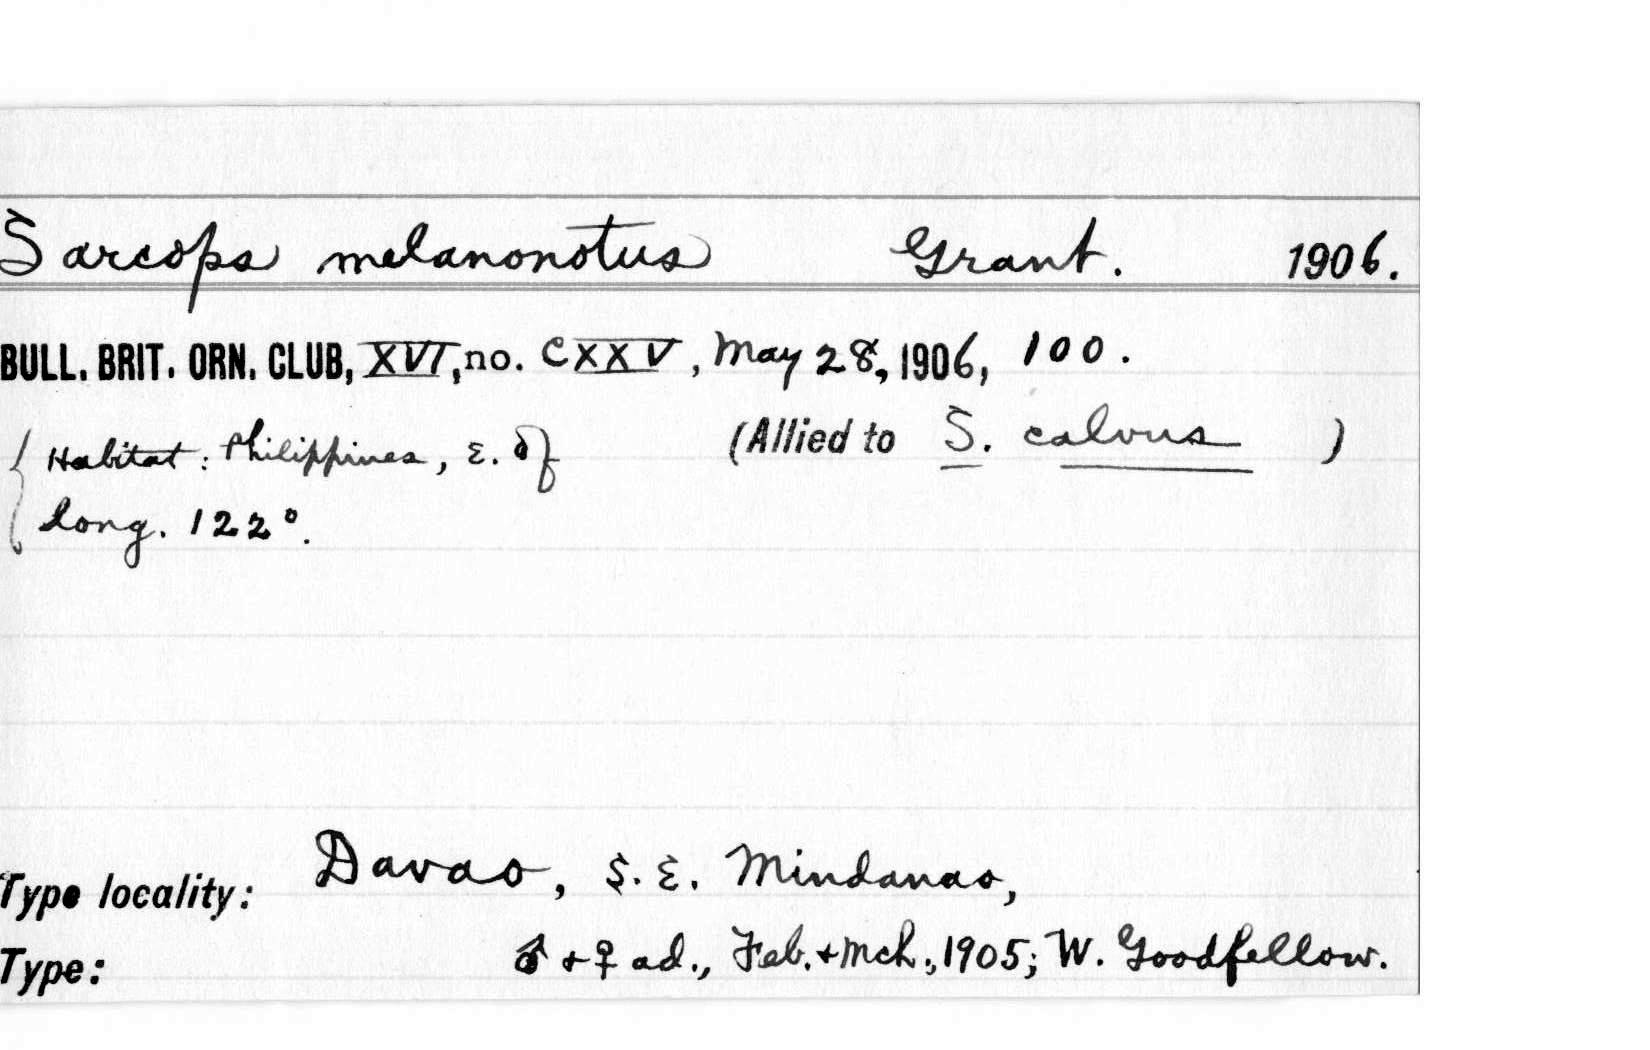 Sarcops melanonotus Grant. 1906.
BULL. BRIT. ORN. CLUB, XVI, no. CXXV, May 28, 1906, 100.
{ Habitat: Philippines, E. of } (Allied to S. calvus )
long. 122°.
Type locality: Davao, S. E. Mindanao,
Type: ♂ + ♀ ad., Feb. + Mch., 1905; W. Goodfellow.